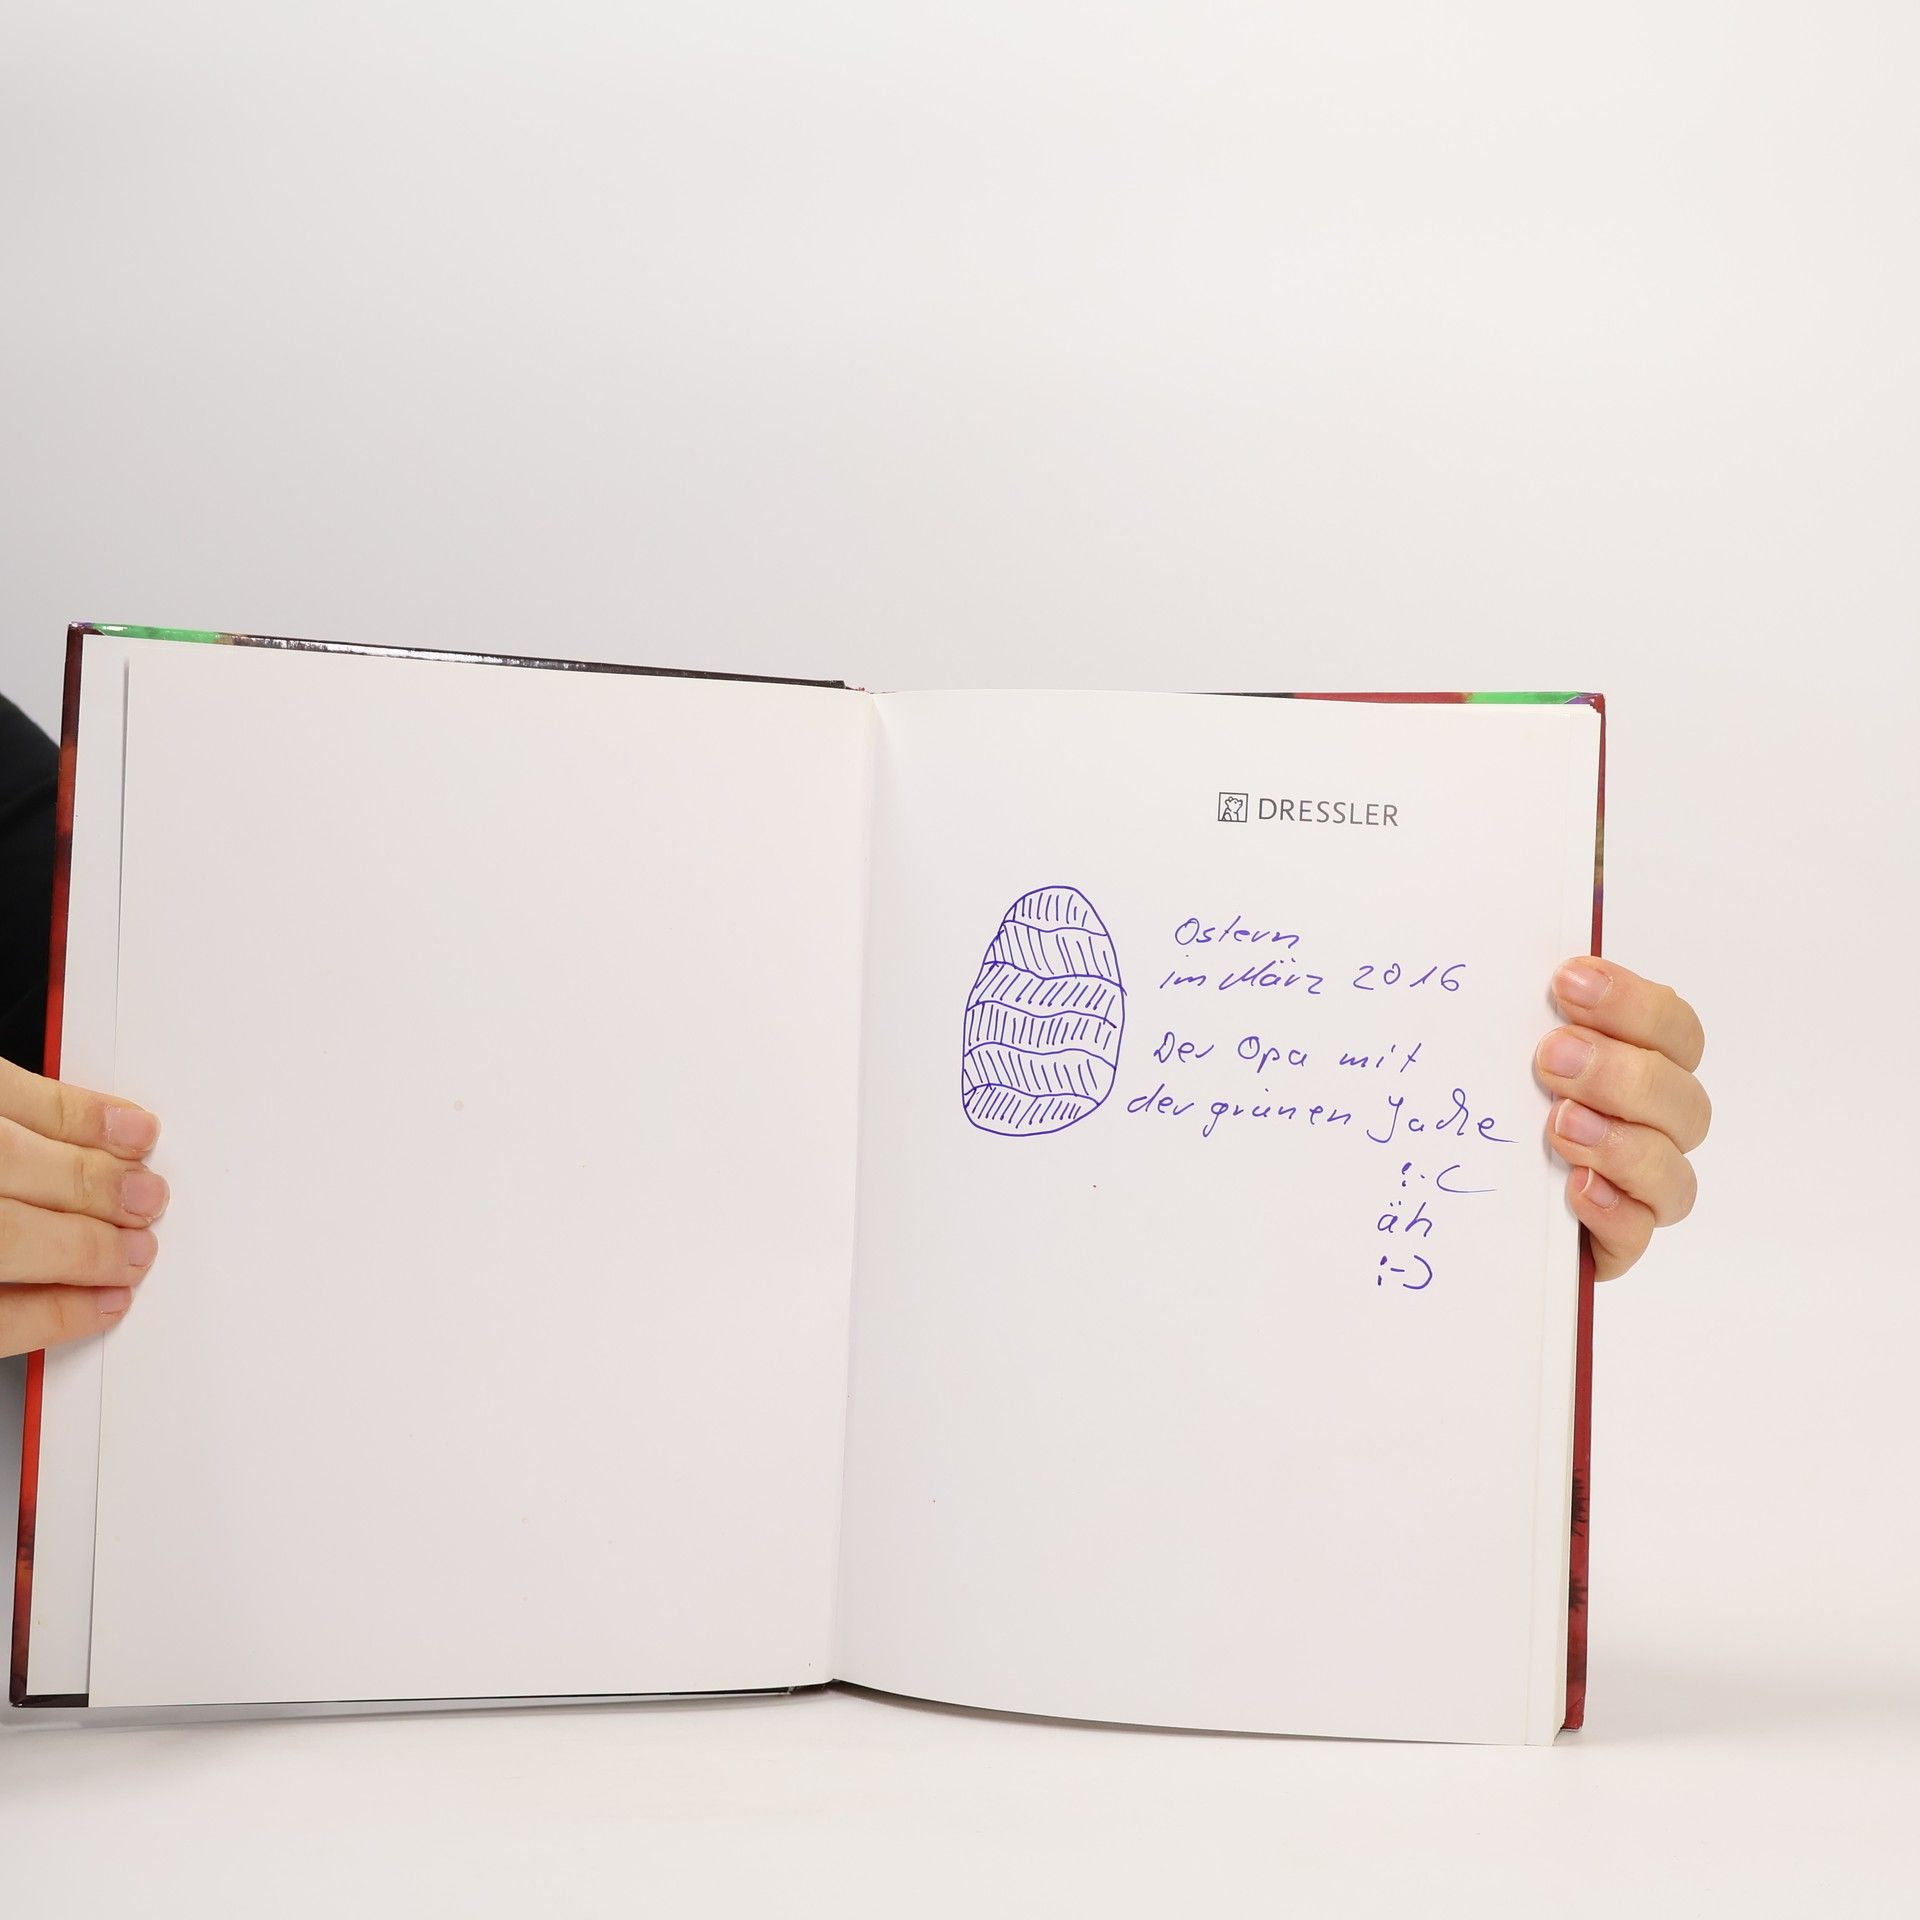 DRESSLER
Ostern
im März 2016
Der Opa mit
der grünen Jacke
:-(
äh
:-)